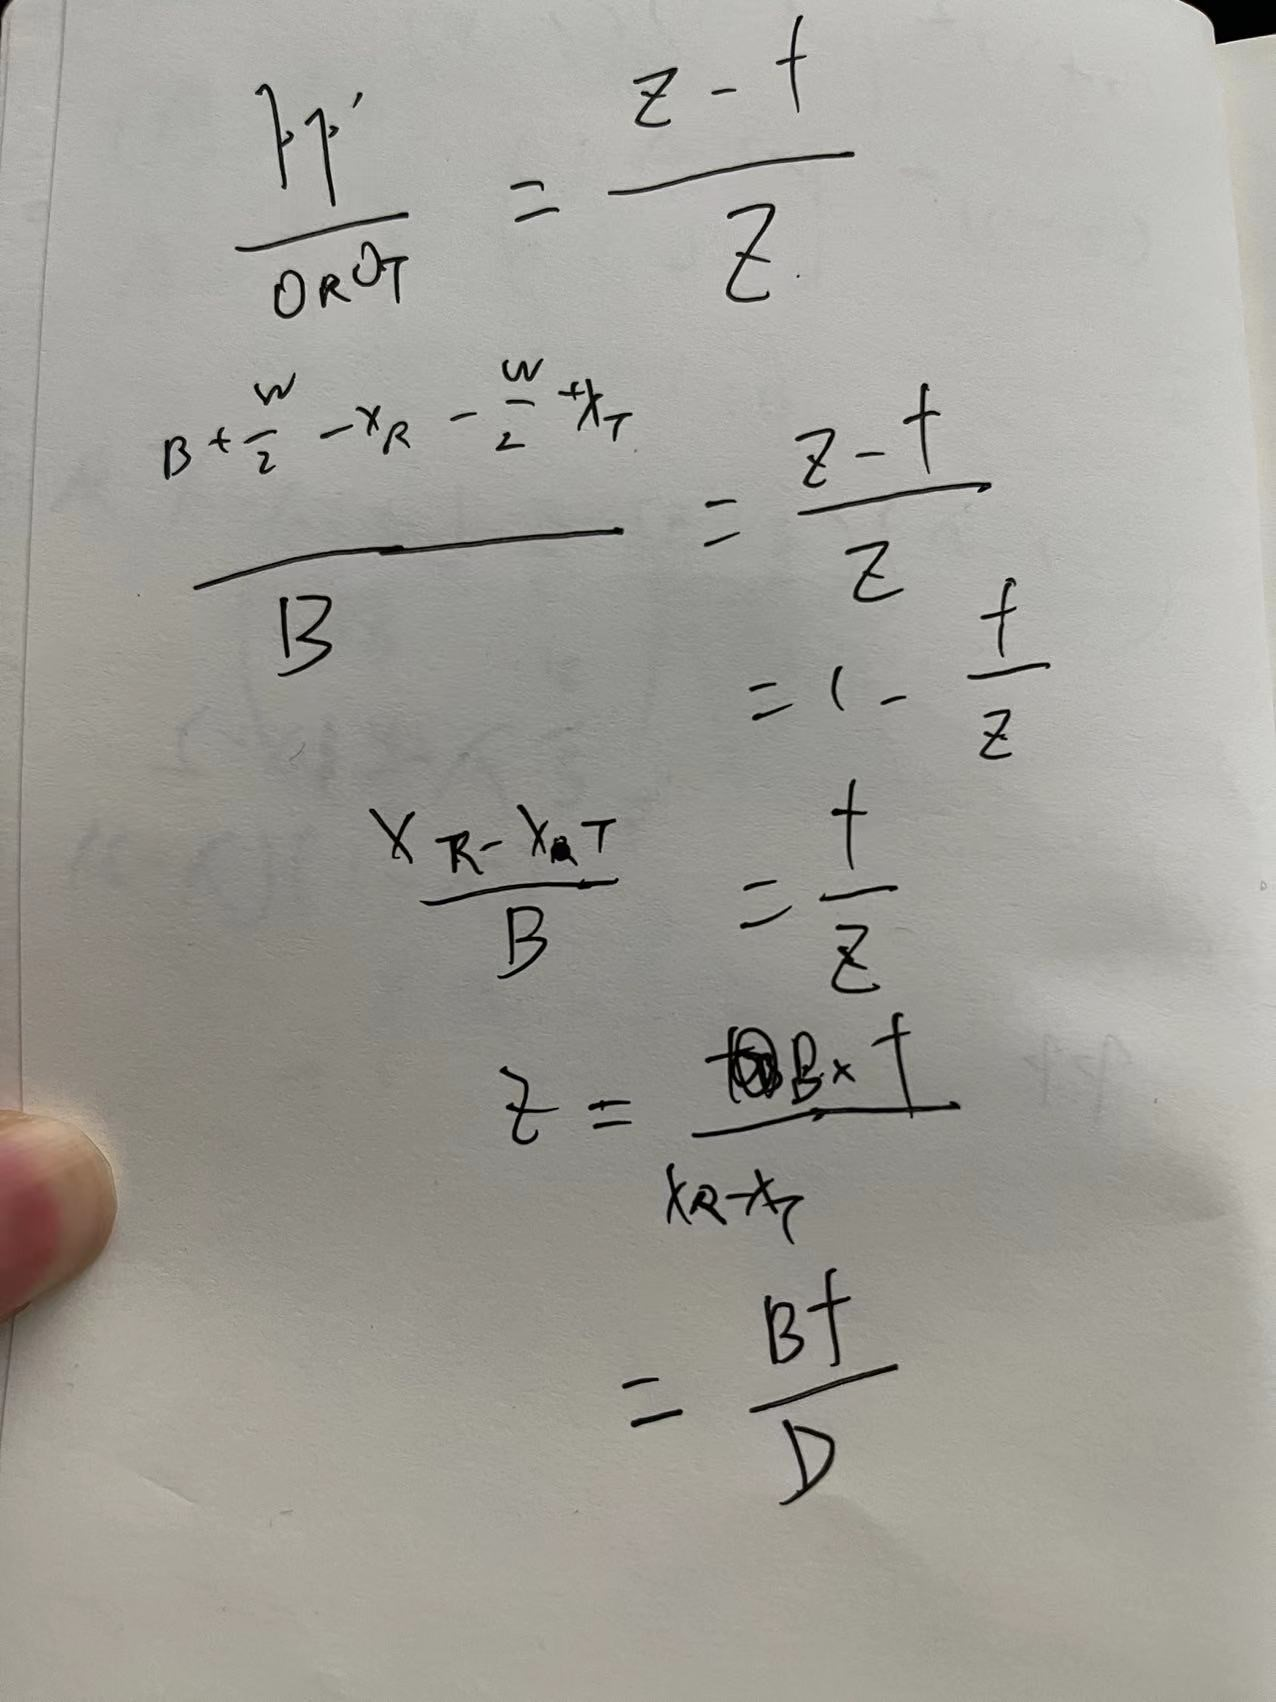 pp' / O_R O_T = (z - f) / Z
(B + w/2 - x_R - w/2 + x_T) / B = (z - f) / z
= 1 - f / z
(x_R - x_T) / B = f / z
z = (B x f) / (x_R - x_T)
= Bf / D